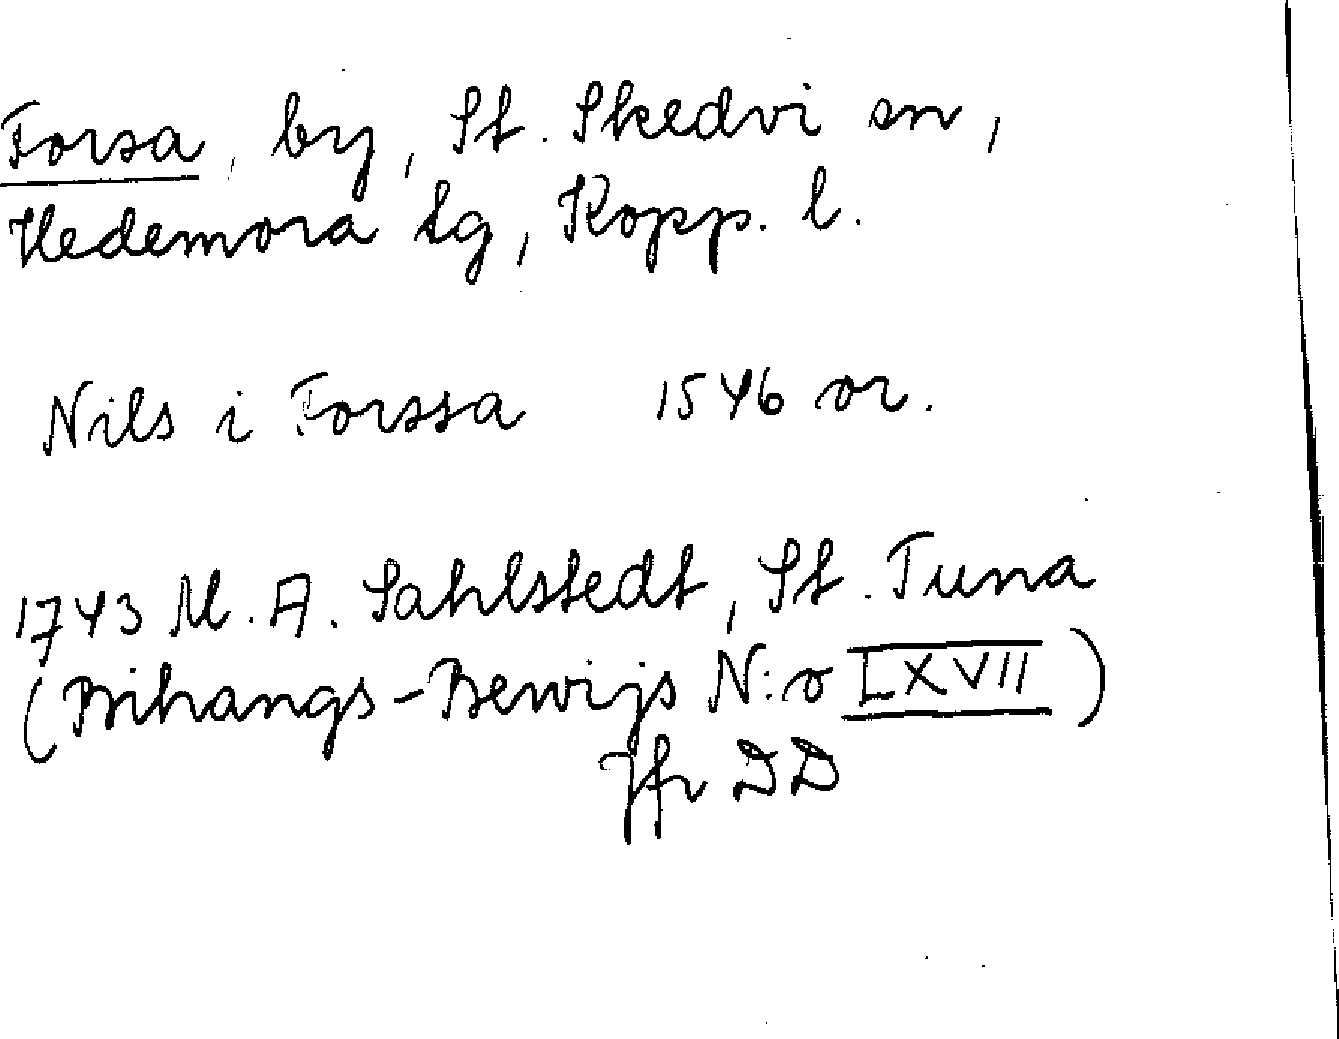 Forsa, by, St. Skedvi sn,
Hedemora tg, Kopp. l.
Nils i Forssa 1546 or.
1743 M. A. Sahlstedt, St. Tuna
(Bihangs-Bewijs N:o LXVII)
Jfr DD